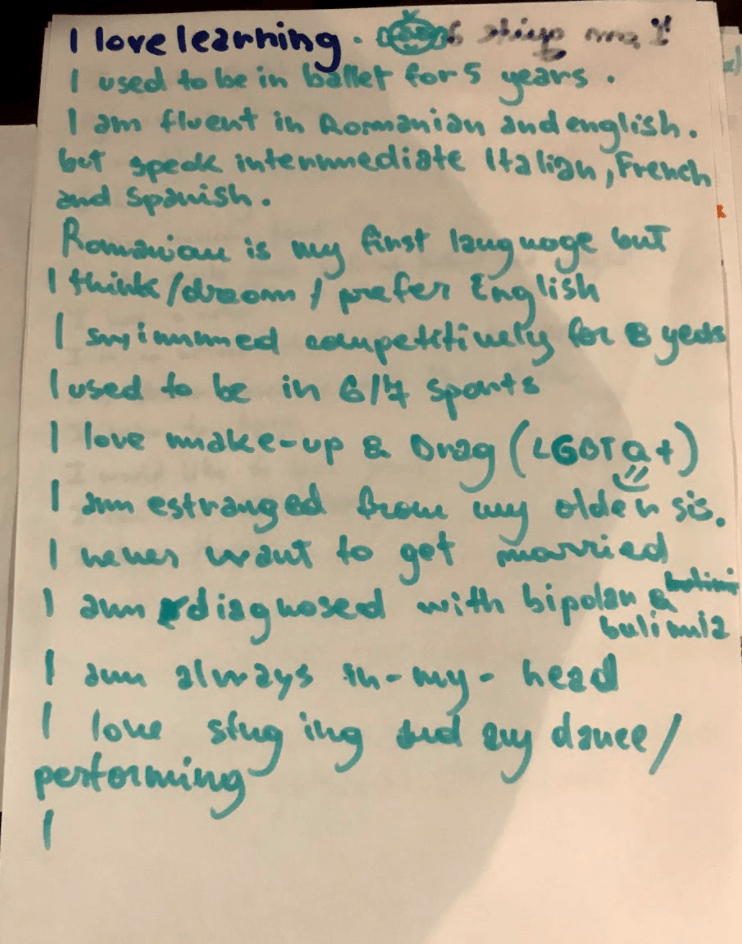 I love learning.
I used to be in ballet for 5 years.
I am fluent in Romanian and english.
but speak intermmediate Italian, French
and Spanish.
Romanian is my first language but
I think/dream/prefer English
I swimmed competitively for 8 years
I used to be in 6/7 sports
I love make-up & Drag (LGBTQ+)
I am estranged from my older sis.
I never want to get married
I am diagnosed with bipolar & bulimi
bulimia
I am always in-my-head
I love singing and any dance/
performing
I